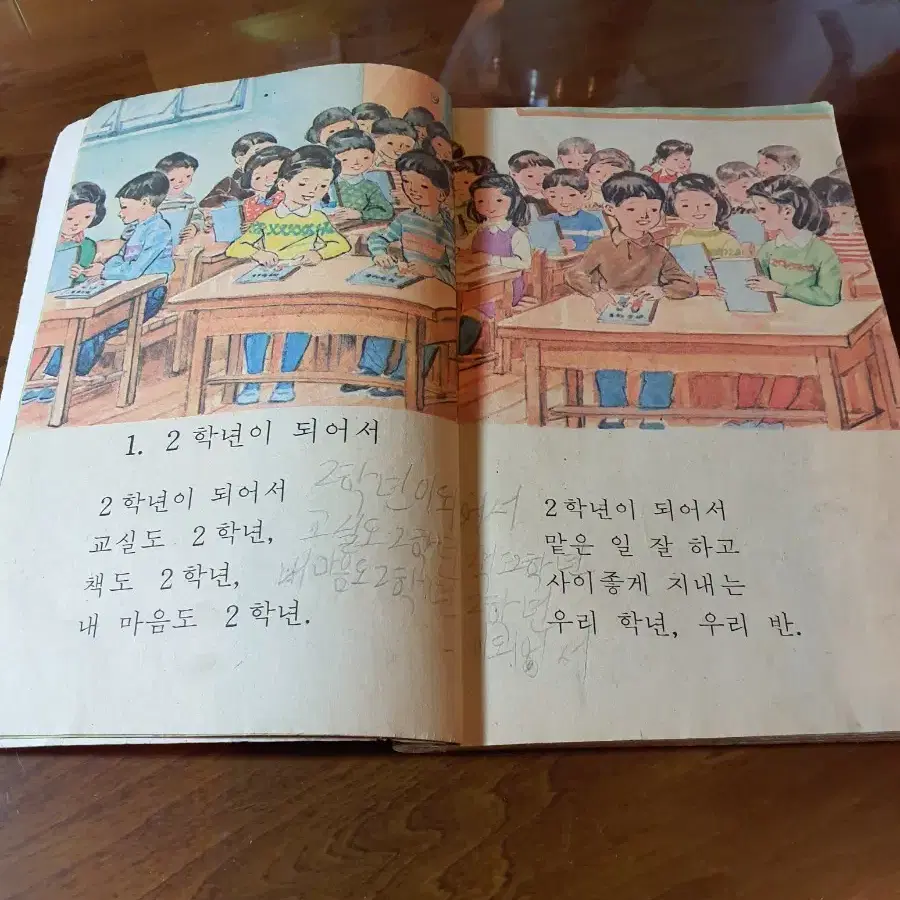 1. 2 학년이 되어서
2 학년이 되어서
교실도 2 학년,
책도 2 학년,
내 마음도 2 학년.
2학년이 되어서
교실도 2학년
책도 2학년
내마음도 2학년
2학년
되어서
2 학년이 되어서
맡은 일 잘 하고
사이좋게 지내는
우리 학년, 우리 반.